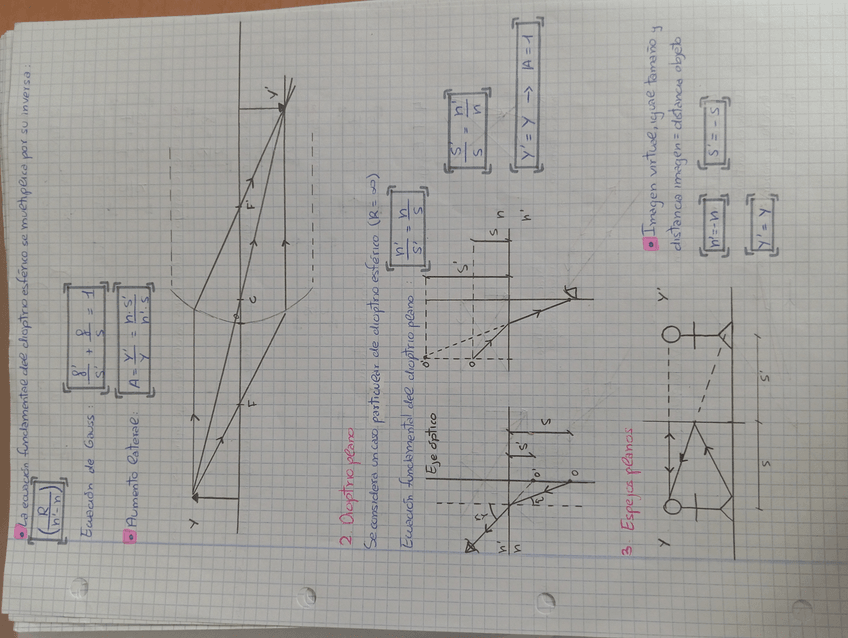 • La ecuación fundamental del dioptrio esférico se multiplica por su inversa:
[R/(n'-n)]
Ecuación de Gauss: [f'/s' + f/s = 1]
• Aumento lateral: [A = Y'/Y = n·s'/n'·s]
Y
F
O
C
F'
Y'
2. Dioptrio plano
Se considera un caso particular de dioptrio esférico (R=∞)
Ecuación fundamental del dioptrio plano: [n'/s' = n/s]
[s'/s = n'/n]
[Y' = Y → A = 1]
Eje óptico
n'
n
O'
O
s'
s
O'
O
s'
s
n
n'
3. Espejos planos
Y
Y'
s
s'
• Imagen virtual, igual tamaño y
distancia imagen = distancia objeto
[n' = -n] [s' = -s]
[Y' = Y]